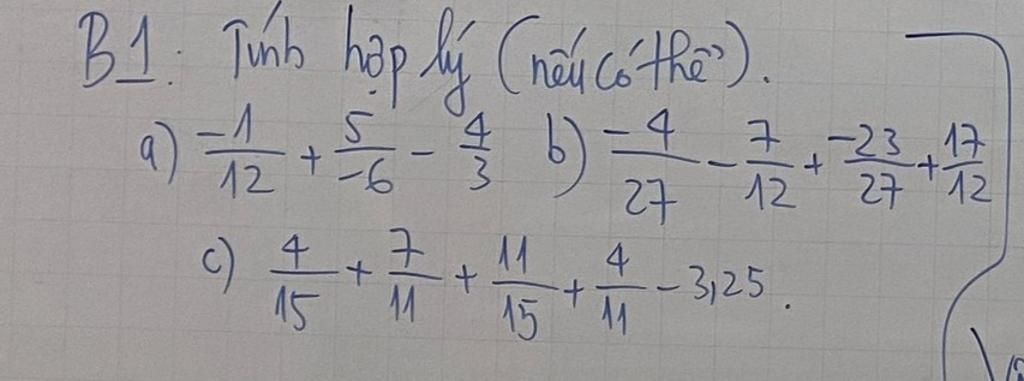 B1. Tính hợp lý (nếu có thể).
a) -1/12 + 5/-6 - 4/3 b) -4/27 - 7/12 + -23/27 + 17/12
c) 4/15 + 7/11 + 11/15 + 4/11 - 3,25.